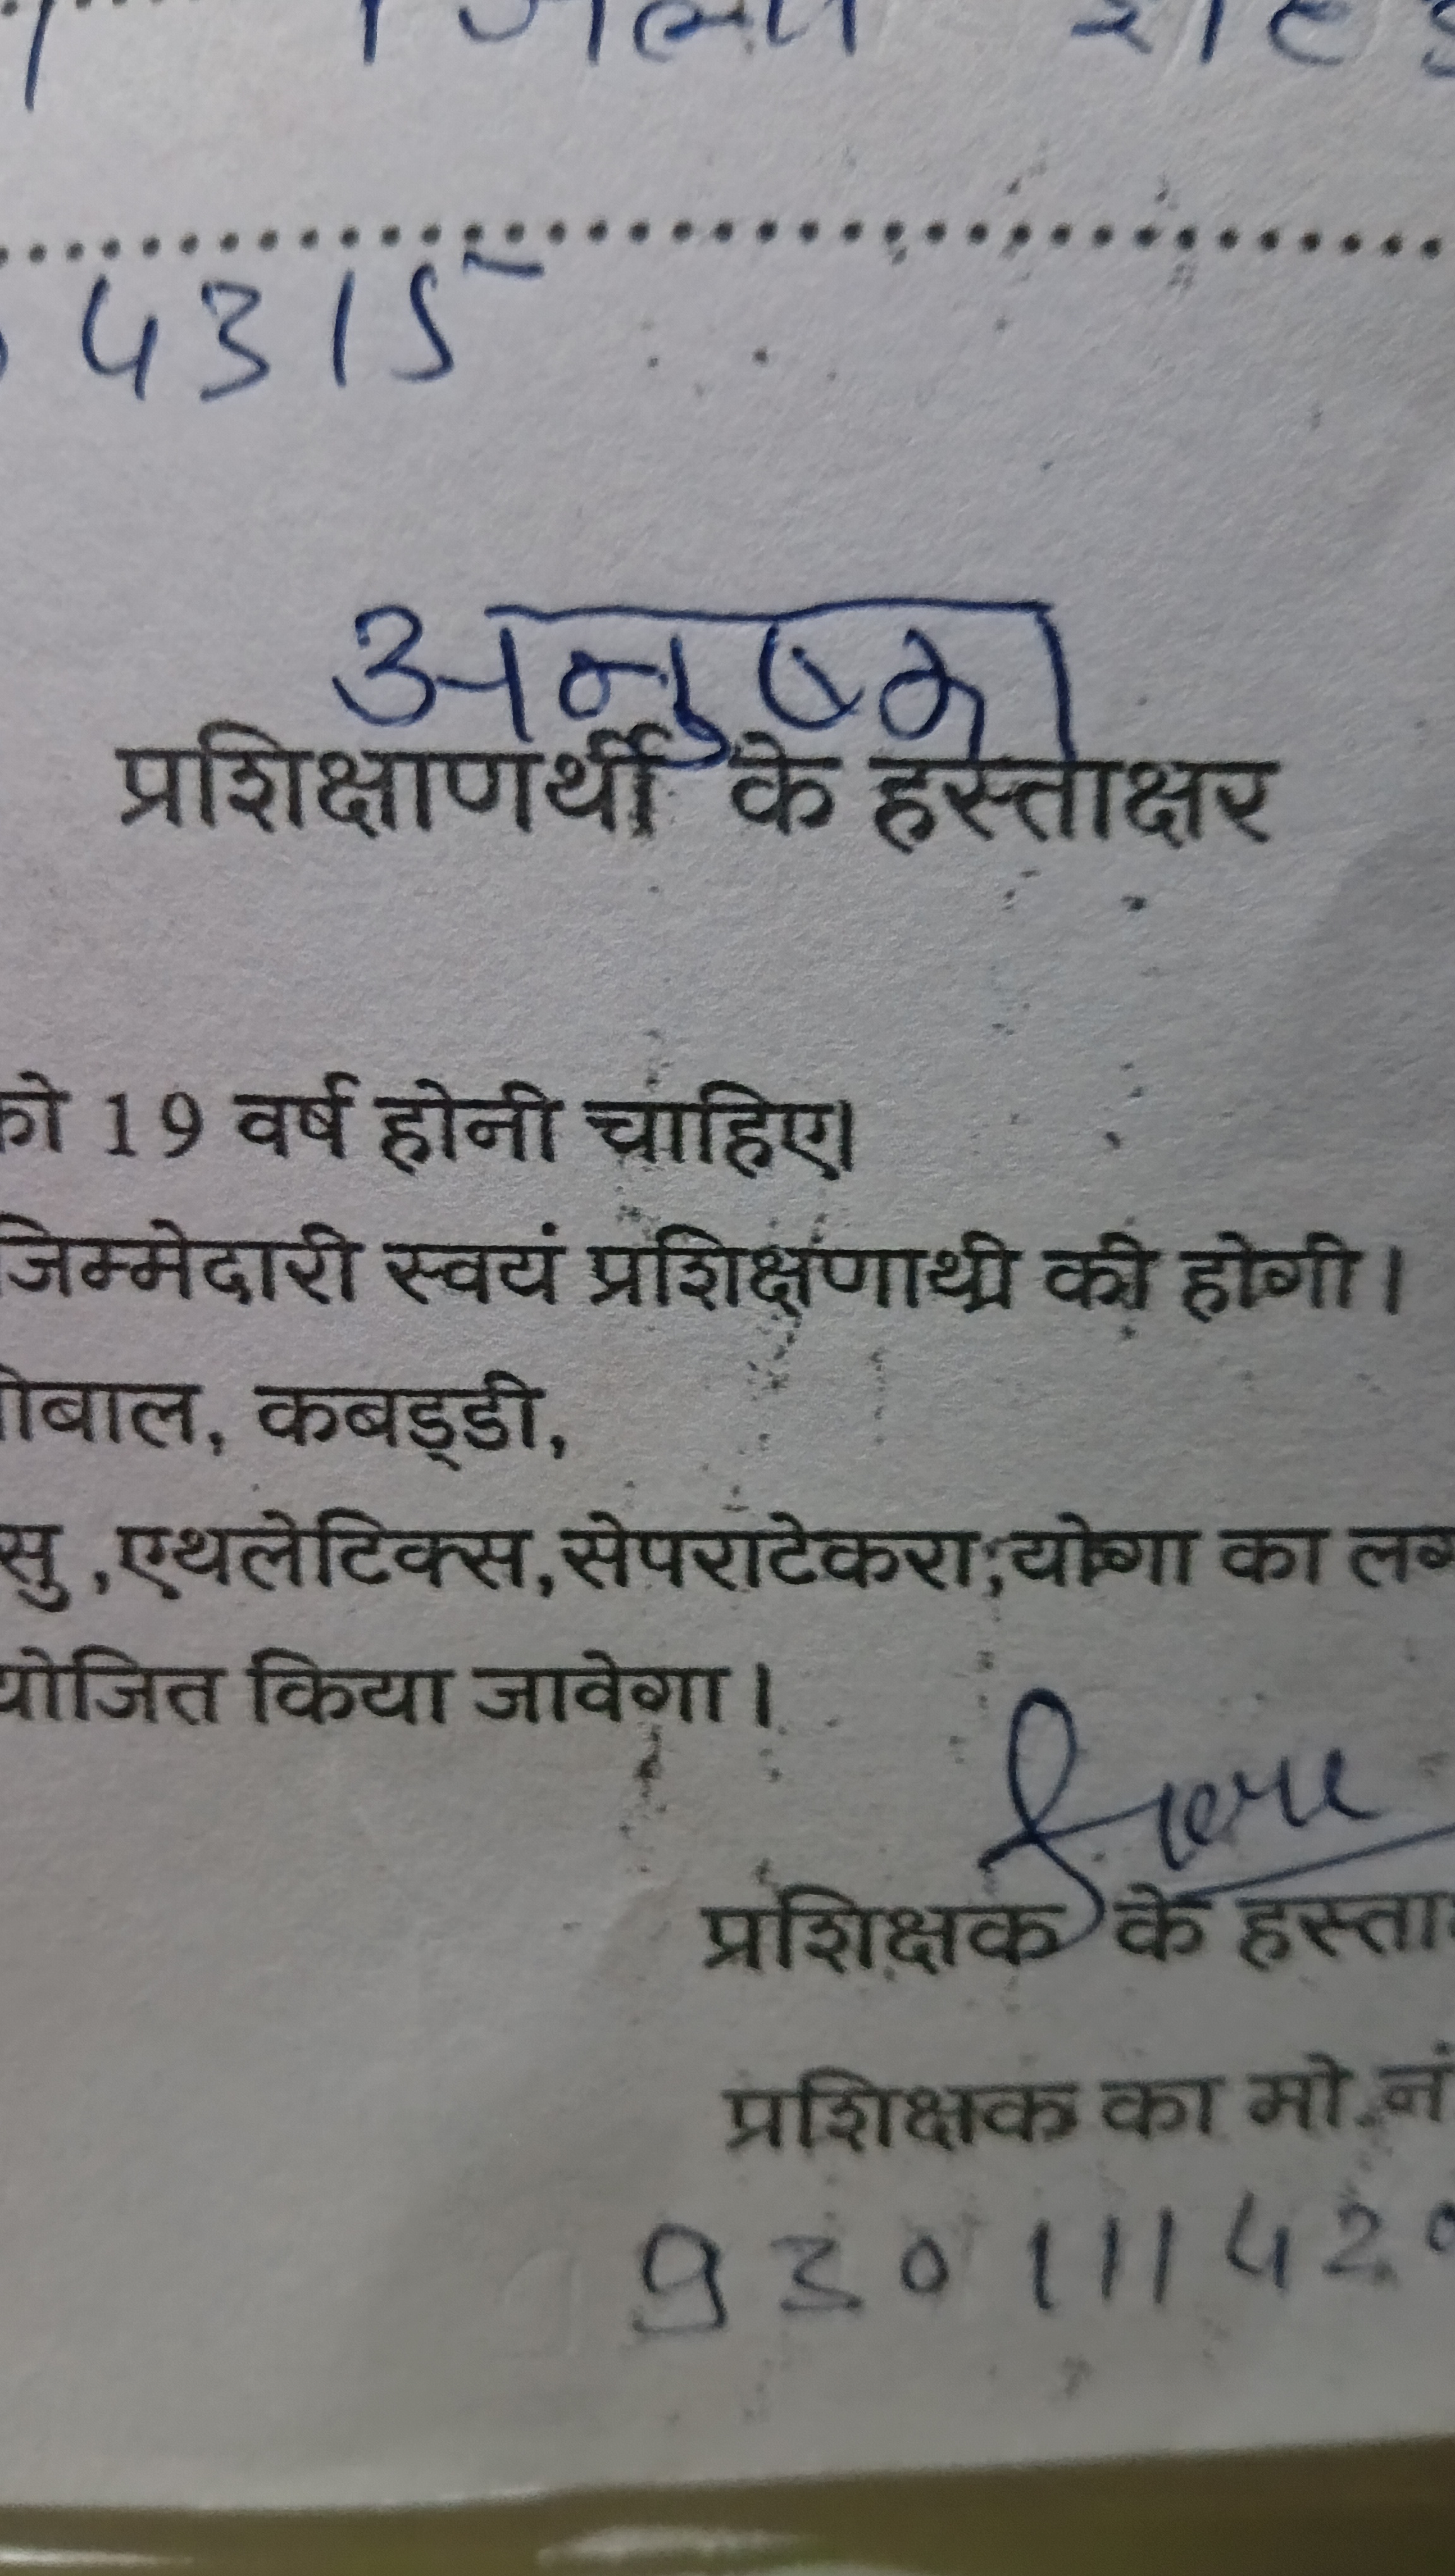 4315
अनुष्का
प्रशिक्षाणर्थी के हस्ताक्षर
को 19 वर्ष होनी चाहिए।
जिम्मेदारी स्वयं प्रशिक्षणार्थी की होगी।
बाल, कबड्डी,
सु ,एथलेटिक्स,सेपराटेकरा,योगा का
योजित किया जावेगा।
प्रशिक्षक के हस्ता
प्रशिक्षक का मो.नं
930111420